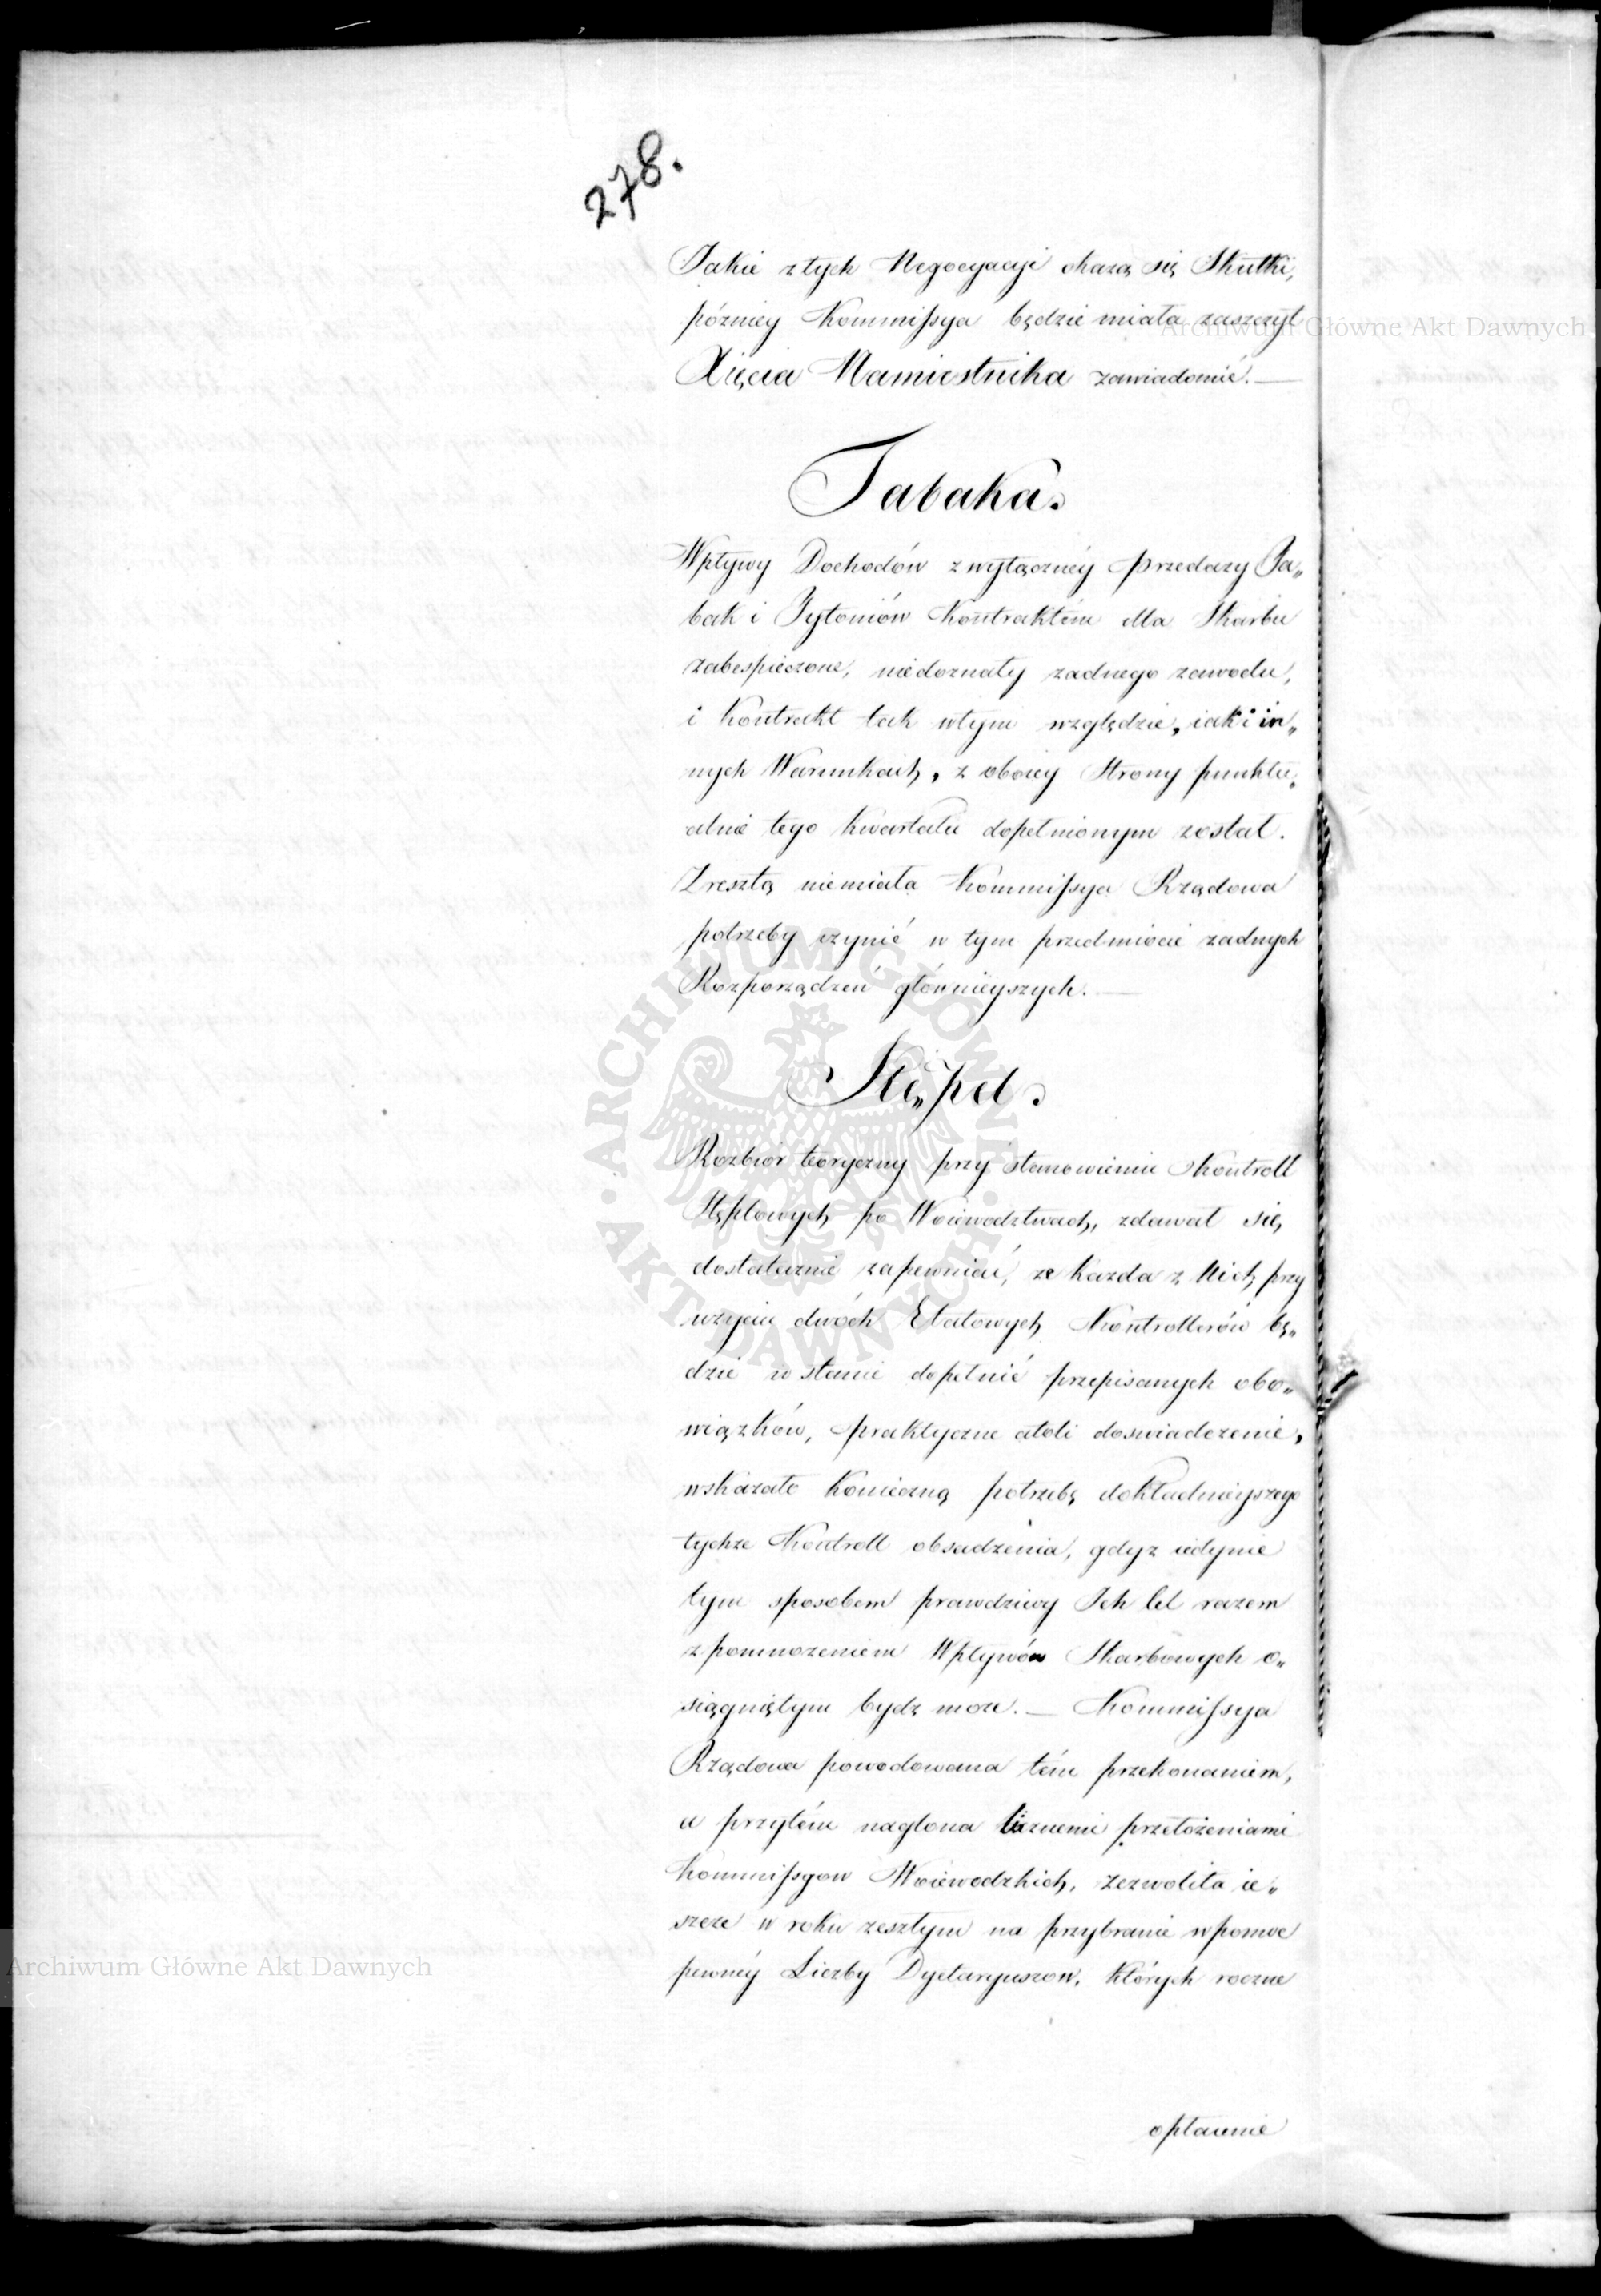 278.
Jakie z tych Negocyacji okażą się Skutki,
późniey Kommissya będzie miała zaszczyt
Xięcia Namiestnika zawiadomić. —
Tabaka.
Wpływy Dochodów z wyłączney Przedaży Ta„
bak i Tytoniów Kontraktem dla Skarbu
zabespieczone, niedoznały żadnego zawodu,
i Kontrakt tak wtym względzie, iak i in„
nych Warunkach, z obojey Strony punktu„
alnie tego kwartału dopełnionym został.
Zresztą niemiała Kommissya Rządowa
potrzeby czynić w tym przedmiocie żadnych
Rozporządzeń główneyszych. —
Stępel.
Rozbiór teoryczny przy stanowieniu Kontroll
Stęplowych po Woiewodztwach, zdawał się
dostatecznie zapewniać, że każda z Nich przy
użyciu dwóch Etatowych Kontrollerów bę„
dzie w stanie dopełnić przepisanych obo„
wiązków, praktyczne atoli doswiadczenie,
wskazało konieczną potrzebę dokładnieyszego
tychże Kontroll obsadzenia, gdyż iedynie
tym sposobem prawdziwy Ich cel razem
z pomnożeniem Wpływów Skarbowych o„
siągniętym bydź może. — Kommissya
Rządowa powodowana tém przekonaniem,
a przytém naglona licznemi przełożeniami
Kommissyow Woiewodzkich, zezwoliła ie„
szcze w roku zeszłym na przybranie w pomoc
pewnéy Liczby Dyetaryuszow, których roczne
opłacenie
Archiwum Główne Akt Dawnych
Archiwum Główne Akt Dawnych
ARCHIWUM GŁÓWNE AKT DAWNYCH